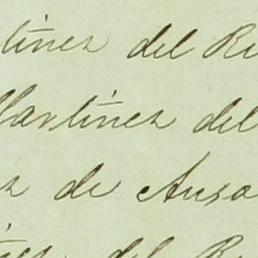 tínez del R
Martínez del
z de Ausa
del R